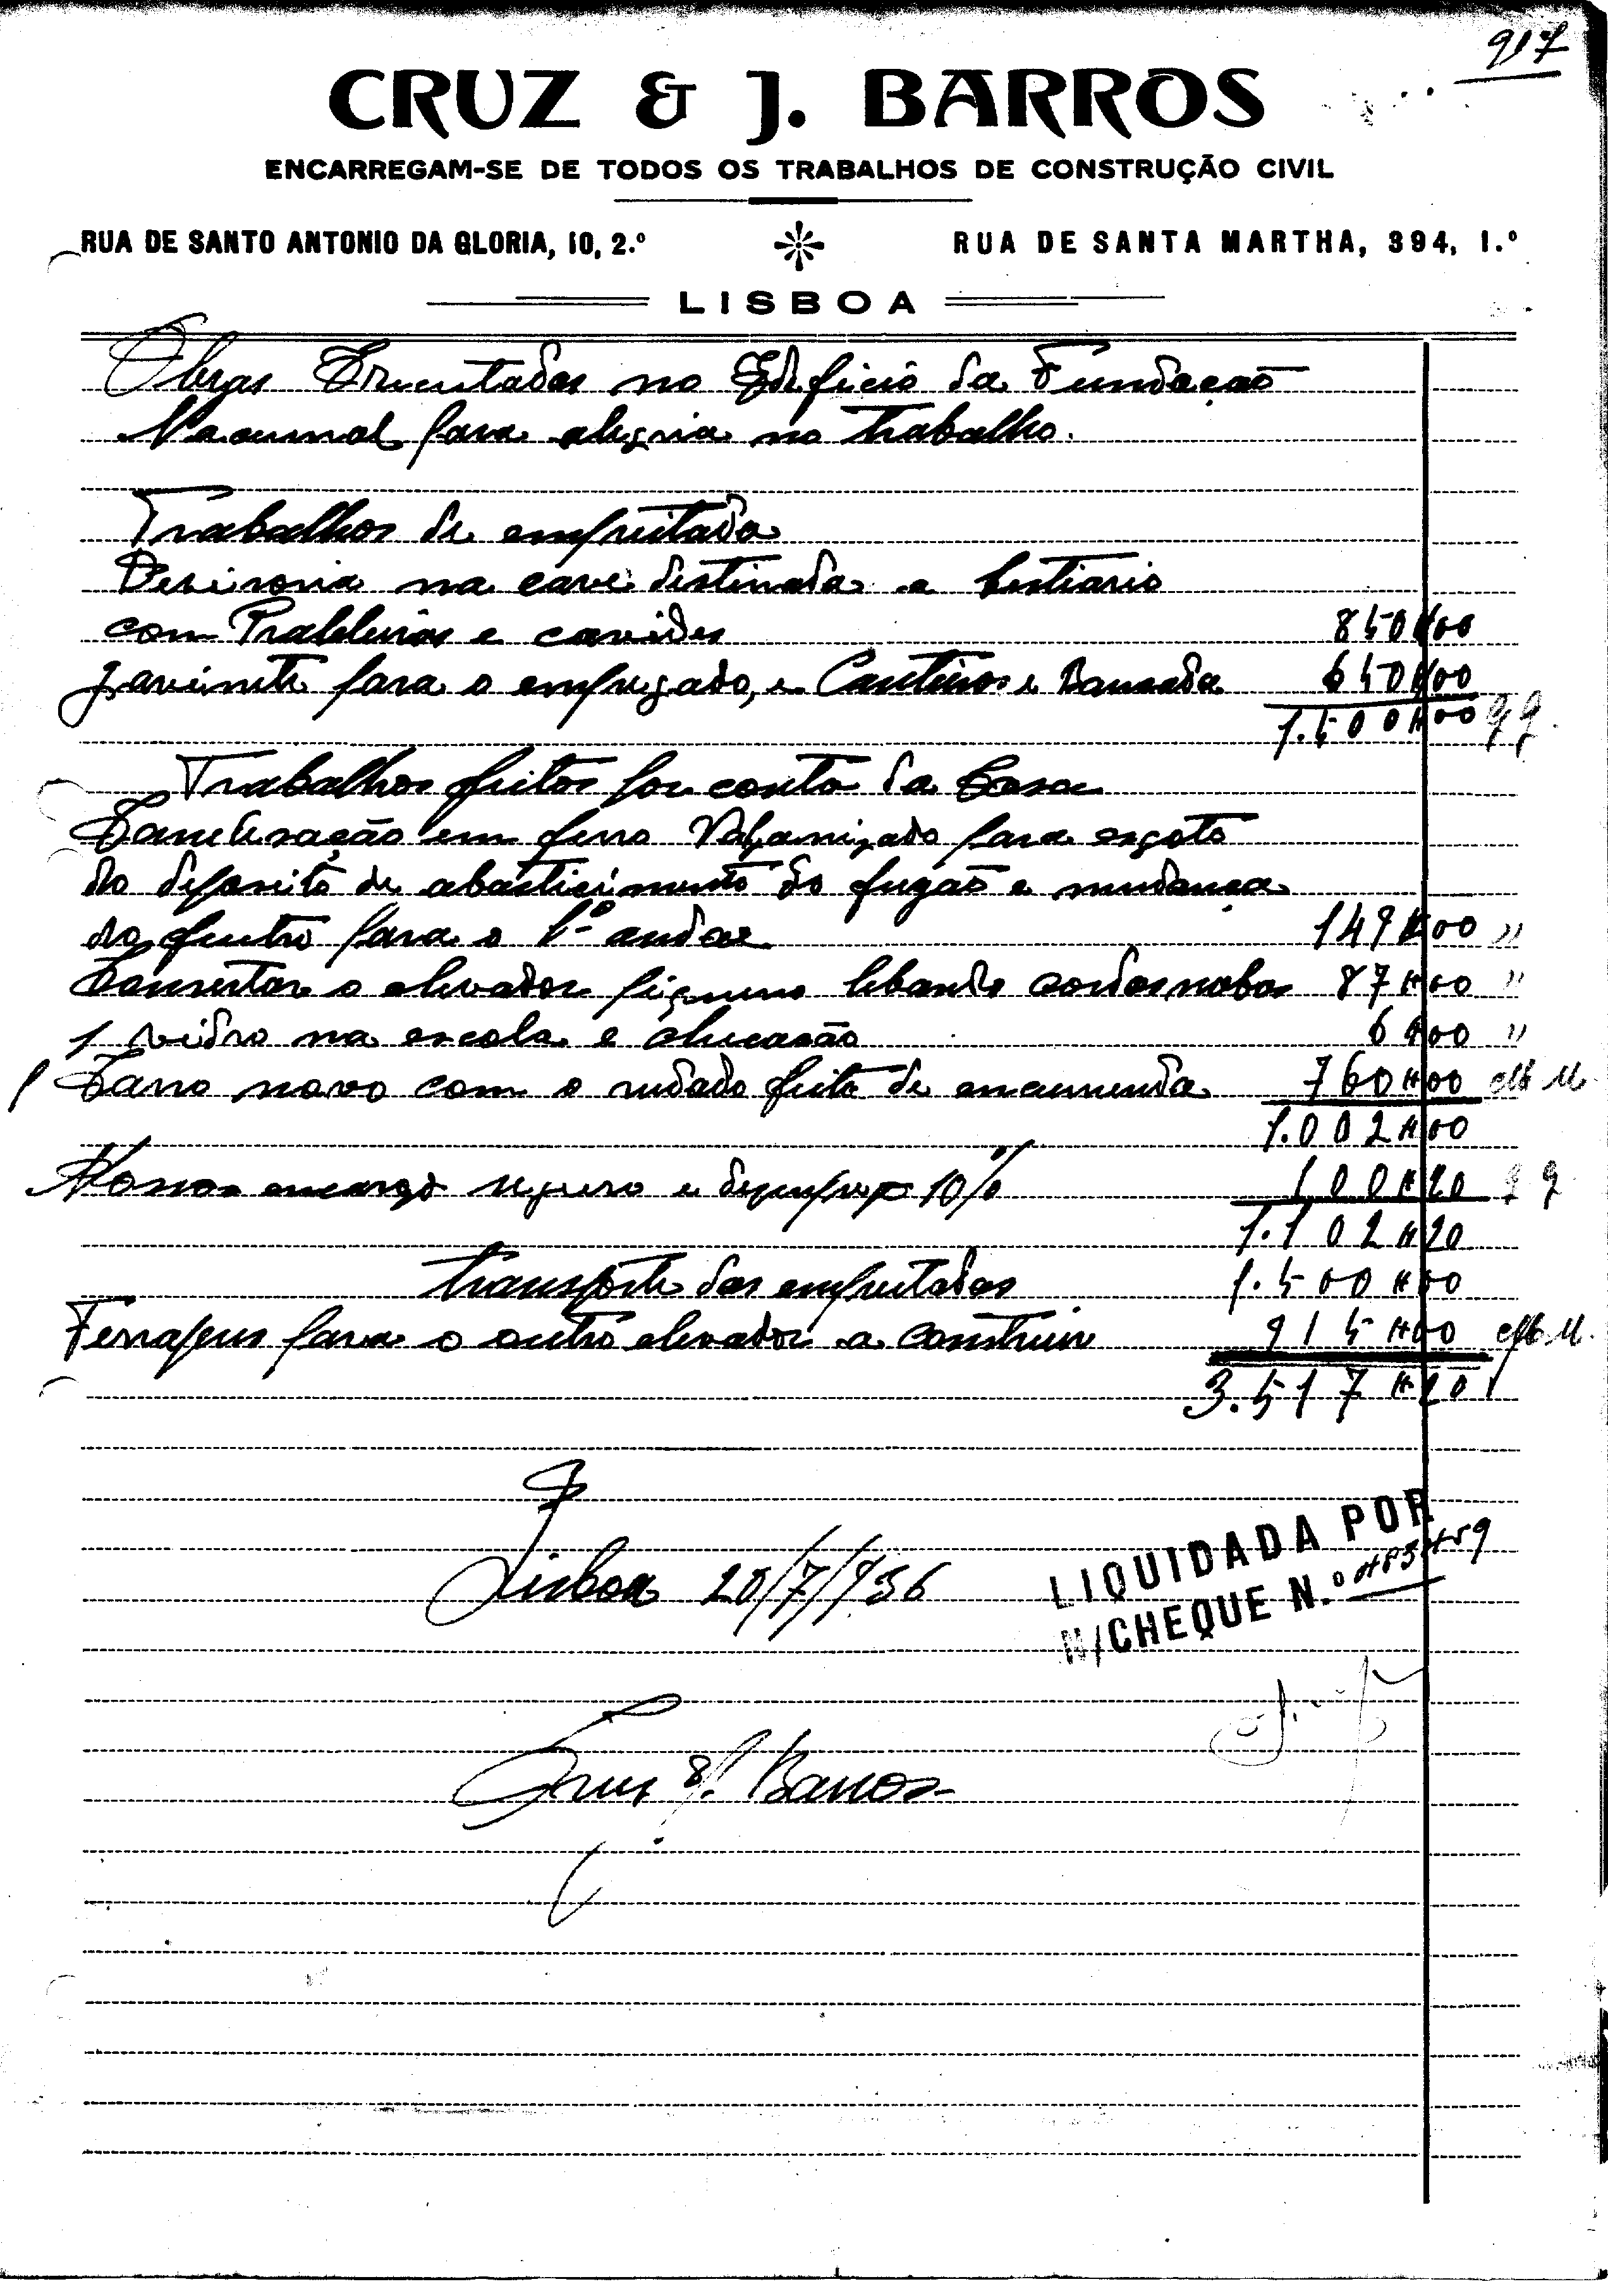 917
CRUZ & J. BARROS
ENCARREGAM-SE DE TODOS OS TRABALHOS DE CONSTRUÇÃO CIVIL
RUA DE SANTO ANTONIO DA GLORIA, 10, 2.º
RUA DE SANTA MARTHA, 394, 1.º
LISBOA
Obras Executadas no Edificio da Fundação
Nacional para alegria no trabalho.
Trabalhos de empreitada
Devisoria na cave destinada a bestiario
com Prateleiras e cavides 850$00
para o empregado, e Canteiros e Bancada 650$00
1.500$00
Trabalhos feitos por conta da Casa
Canelisação em ferro Valganizado para esgoto
do deposito de abastecimento do fugão e mudança
do para o 1º andar 149$00 "
Consertar o elevador piqueno lebando cordas nobas 87$00 "
1 vidro na escola e colucação 6$00 "
1 Carro novo com o rudado feito de encumenda 760$00
1.002$00
Nosso encargo seguro e desemprego 10% 100$20
1.102$20
transporte das empreitadas 1.500$00
Ferrajens para o outro elevador a construir 915$00
3.517$20
Lisboa 20/7/936
LIQUIDADA POR
N/CHEQUE N.º
Cruz & J. Barros